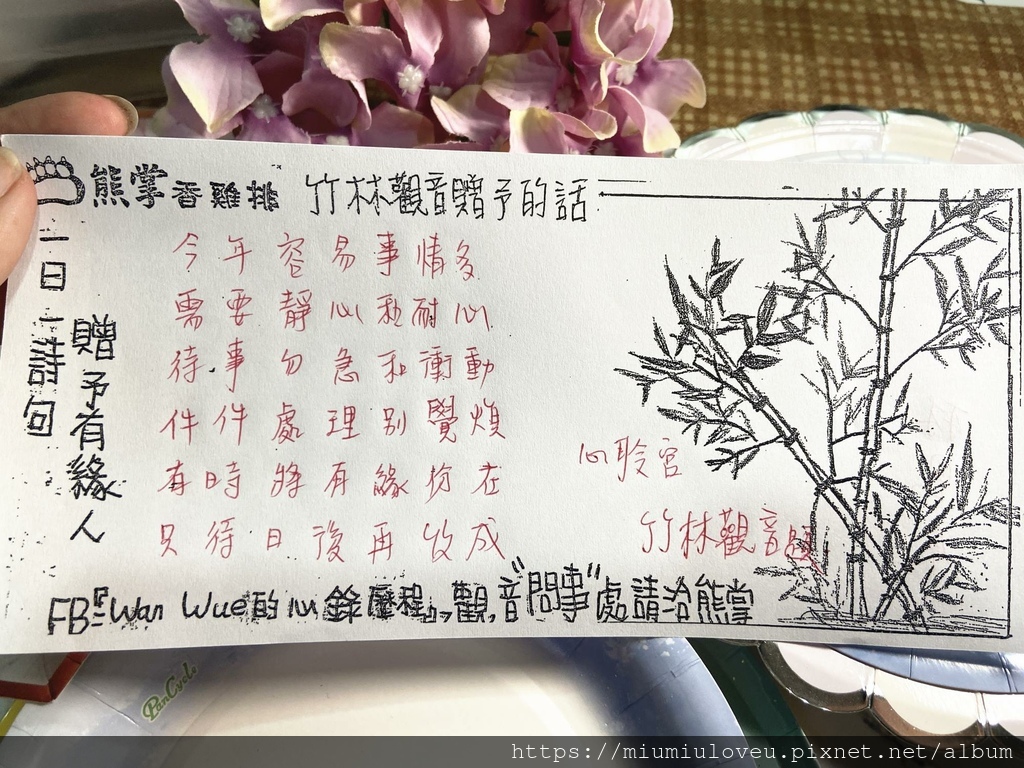 熊掌香雞排 竹林觀音贈予的話
一日一詩句
贈予有緣人
今年容易事情多
需要靜心和耐心
待事勿急和衝動
件件處理別覺煩
有時將有緣份在
只待日後再收成
心聆宮
竹林觀音題
FB『Wan Wue的心錄歷程』觀音"問事"處請洽熊掌
PanCycle
https://miumiuloveu.pixnet.net/album